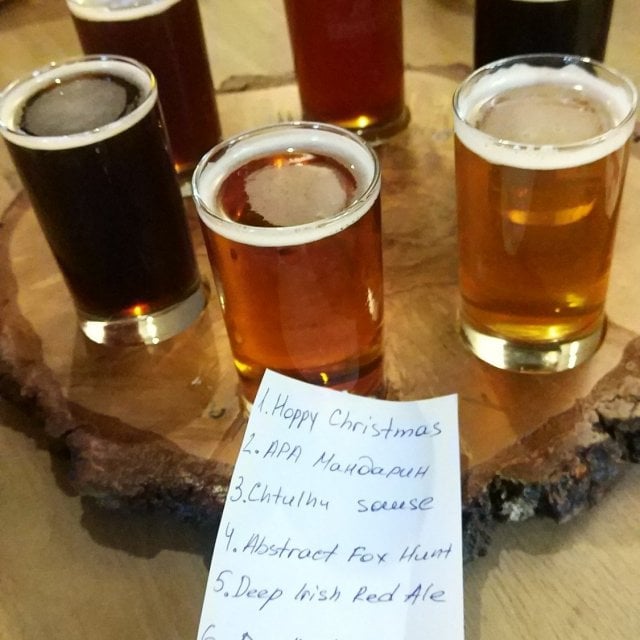 1. Hoppy Christmas
2. APA Мандарин
3. Chtulhu sause
4. Abstract Fox Hunt
5. Deep Irish Red Ale